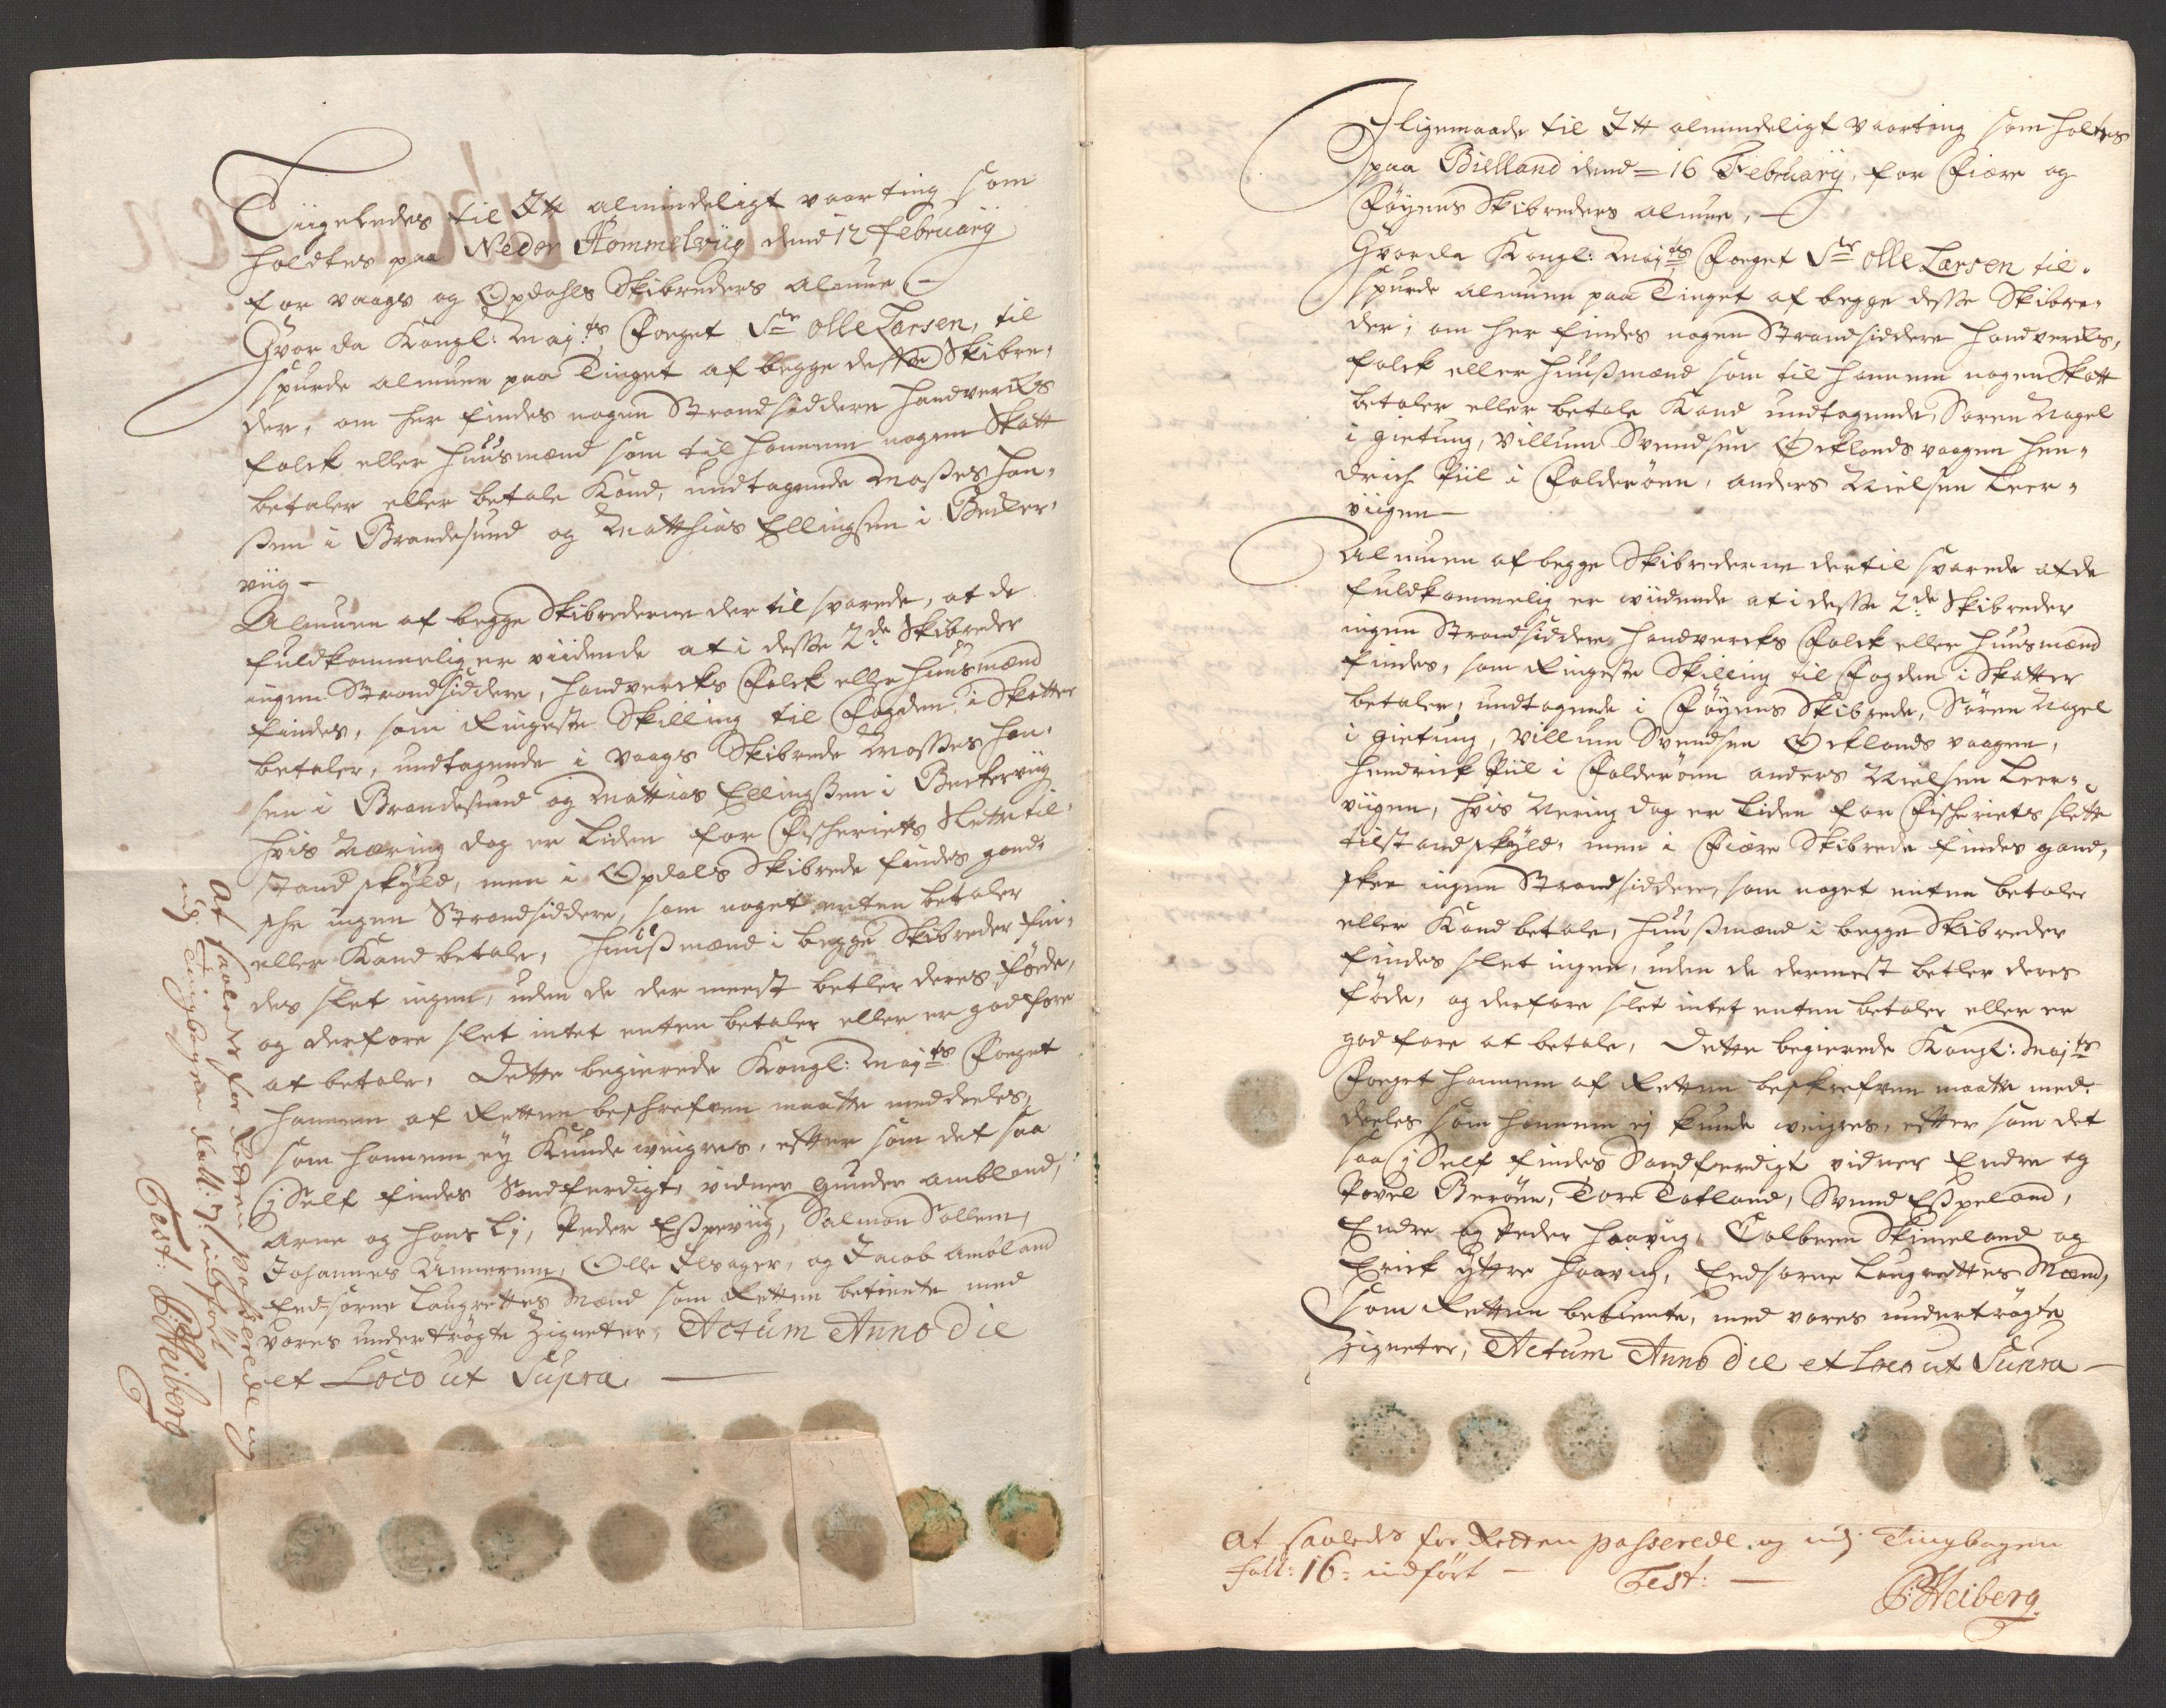 Liigeledes til Itt almindeligt vaarting som
holdtes paa Nedor Hommelviig dend 12 february
for vaags og Opdahls Skibreders almue
Hvor da Kongl: Maj:ts Foeget Sr Olle Larsen, til
spurde almuen paa Tinget af begge desse Skibre-
der, om her findes nogen Strandsiddere handvercks
folck eller huusmænd som til hannem nogen Skatt
betaler eller betale Kand, undtagende Mosses Han-
ßen i Brandesund og Matthias Ellingsen i Becker-
viig -
Almuen af begge Skibrederne der til svarede, at de
fuldkommelig er viidende at i desse 2de Skibreder
ingen Strandsiddere, handvercks Folck eller huusmænd
findes, som Ringeste Skilling til Fogden i Skatter
betaler, undtagende i Vaags Skibrede Mosses Han-
sen i Brandesund og Mattias Ellingßen i Beckerviig
hvis Næring dog er liden for Fischeriets Slette til-
stand skyld, men i Opdals Skibrede findes gand-
sche ingen Strandsiddere, som noget enten betaler
eller Kand betale, huußmænd i begge Skibreder fin-
des slet ingen, uden de der meest betler deres føde,
og derfore slet intet enten betaler eller er god fore
at betale, Dette begierede Kongl: Maj:ts Foeget
hannem af Retten beschrefven maatte meddeeles,
som hannem ey Kunde weigres, efter som det saa
i Self findes Sandferdigt, vidner Gunder Ambland,
Arne og Hans Ly, Peder Eßpeviig, Salmon Sollem,
Johannes Ummerem, Olle Ilsager, og Jacob Ambland
Eedsorne Laugrettes Mænd som Retten betiente med
vores undertrøgte Zigneter, Actum Anno Die
et Loco ut Supra.
At saaledes for Retten passerede og
udj Tingbogen Foll: 7: indført
Test: P:Heiberg
Iligemaade til Itt almindeligt vaarting som holtes
paa Bielland dend = 16 February, for Fiære og
Føyens Skibreders almue, -
Hvorda Kongl: Maj:ts Foeget Sr Olle Larsen til-
spurde almuen paa Tinget af begge desse Skibre-
der, om her findes nogen Strandsiddere handvercks,
folck eller huußmænd som til hannem nogen Skatt
betaler eller betale Kand undtagende, Soren Nagel
i Gietung, Villum Svendsen Ecklands vaagen Hen-
drich Piil i Folderöen, Anders Nielsen Leer-
viigen -
Almuen af begge Skibrederne dertil svarede at de
fuldkommelig er wiidende at i desse 2de Skibreder
ingen Strandsiddere handvercks Folck eller huusmænd
findes, som Ringeste Skilling til Fogden i Skatter
betaler, undtagende i Føyens Skibrede, Søren Nagel
i Gietung, Villum Svendsen Ecklands vaagen,
Hendrick Piil i Folderöen Anders Nielsen Leer-
viigen, hvis Næring dog er liden for Fischeriets slette
tilstand skyld, men i Fiære Skibrede findes gand,
sker ingen Strandsiddere, som noget enten betaler
eller Kand betale, huußmænd i begge Skibreder
findes slet ingen, uden de dermest betler deres
føde, og derfore slet intet enten betaler eller er
god fore at betale, Dette begierede Kongl: Maj:ts
Foeget hannem af Retten beskrefven maatte med-
deeles som hannem ej kunde weigres, efter som det
saa i Self findes Sandferdigt vidner Endre og
Povel Berøen, Tore Totland, Svend Eßpeland,
Endre og Peder Haavig, Tolbeen Skimeland og
Erick Yttre Haavig, Eedsorne Laugrettes Mænd,
som Retten betiente, med vores undertrögte
Zigneter, Actum Anno Die et Loco ut Supra -
At saaledes for Retten passerede, og udj Tingbogen
Foll: 16: indført - Test: -
P:Heiberg.